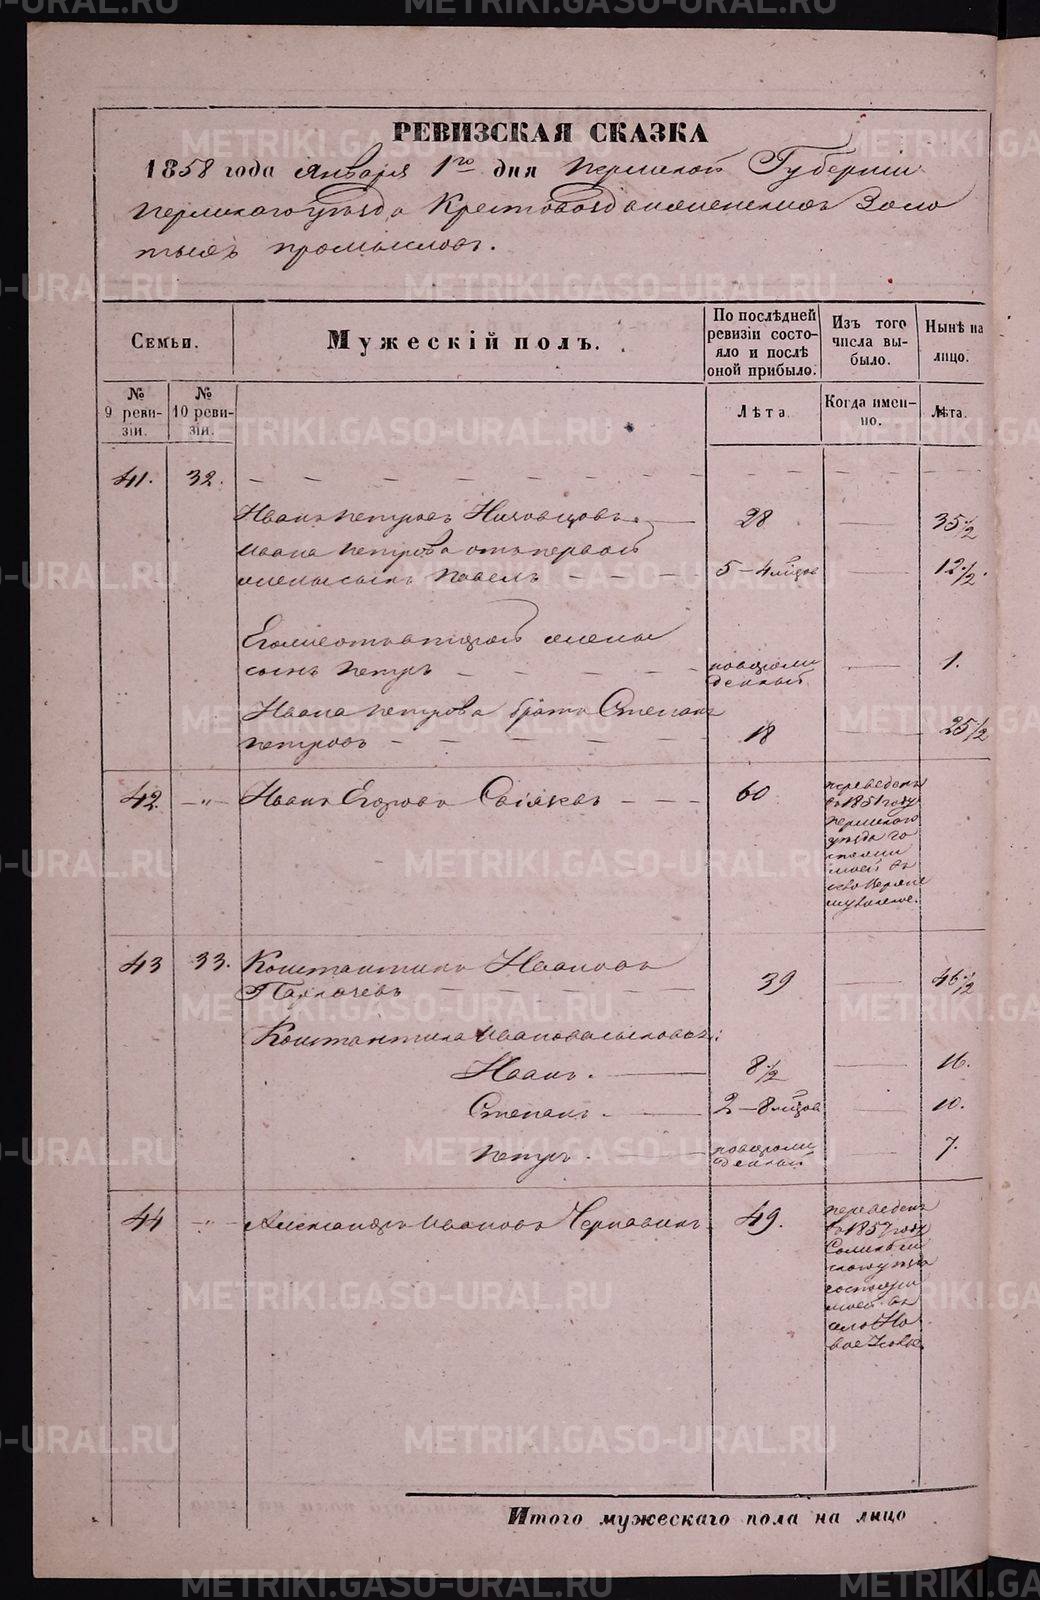 РЕВИЗСКАЯ СКАЗКА
1858 года Января 1го дня Пермской Губернии
Пермскаго уѣзда Крестовоздвиженскихъ Золо
тыхъ промысловъ.
Семьи.
Мужескій полъ.
По послѣдней ревизіи состояло и послѣ оной прибыло.
Изъ того числа выбыло.
Нынѣ на лицо.
№ 9 ревизіи.
№ 10 ревизіи.
Лѣта.
Когда именно.
Лѣта.
41. 32.
Иванъ Петровъ 28 35 1/2
Ивана Петрова отъ первой
жены сынъ Павелъ 5 - 4 мѣсяцъ 12 1/2.
Его же отъ второй жены
сынъ Петръ новорожденный 1.
Ивана Петрова братъ Степанъ
Петровъ 18 25 1/2
42. -"- Иванъ Егоровъ 60
переведенъ
въ 1851 году
Пермского
уѣзда
43 33. Константинъ Ивановъ
39 46 1/2
Константина Иванова сыновья:
Иванъ. 8 1/2 16.
Степанъ. 2 - 8 мѣсяцъ 10.
Петръ. новорожденный 7.
44 -"- Александръ Ивановъ Чернавинъ 49.
переведенъ
въ 1857 году
въ
село Но
вое Усолье.
Итого мужескаго пола на лицо
METRIKI.GASO-URAL.RU